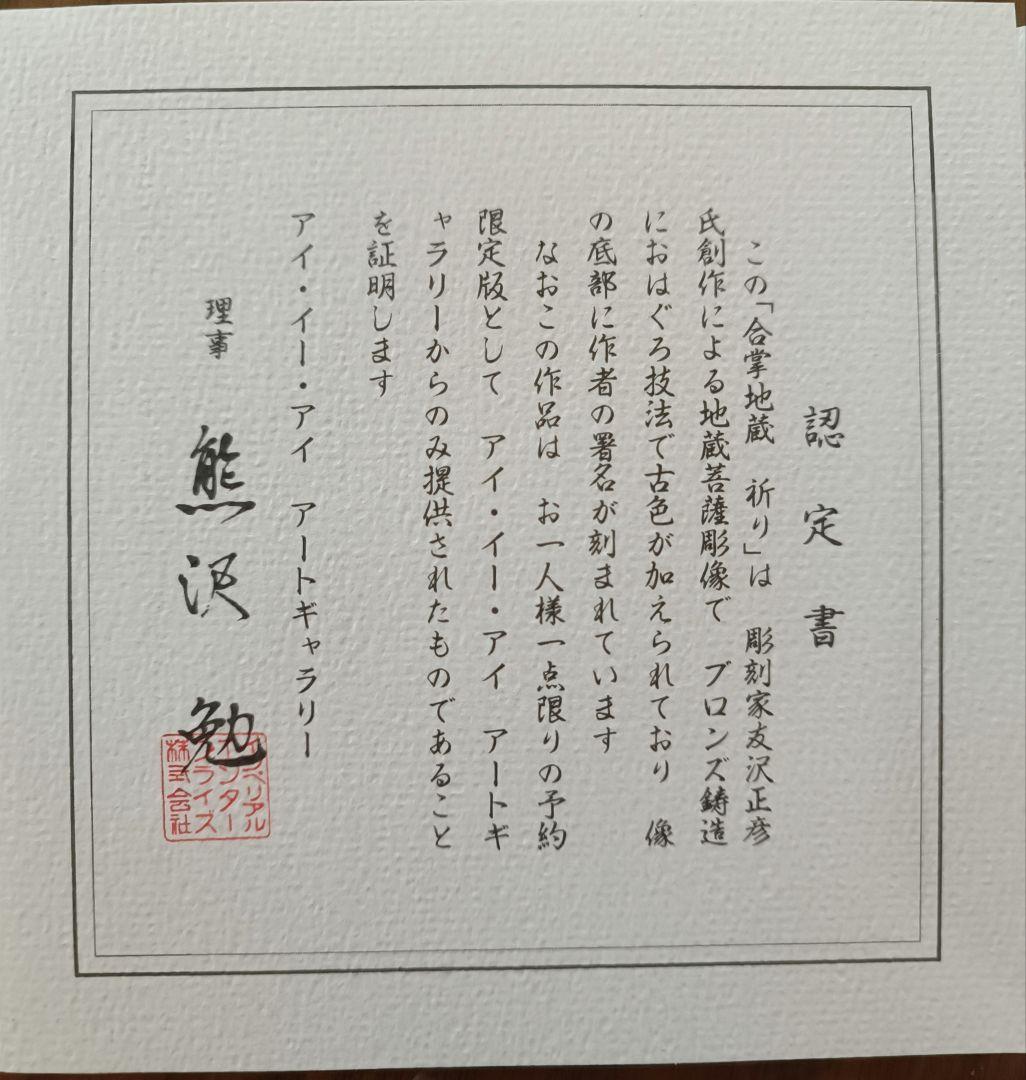 認定書
この「合掌地蔵　祈り」は　彫刻家友沢正彦
氏創作による地蔵菩薩彫像で　ブロンズ鋳造
におはぐろ技法で古色が加えられており　像
の底部に作者の署名が刻まれています
なおこの作品は　お一人様一点限りの予約
限定版として　アイ・イー・アイ　アートギ
ャラリーからのみ提供されたものであること
を証明します
アイ・イー・アイ　アートギャラリー
理事　熊沢　勉
インペリアル
エンター
プライズ
株式会社